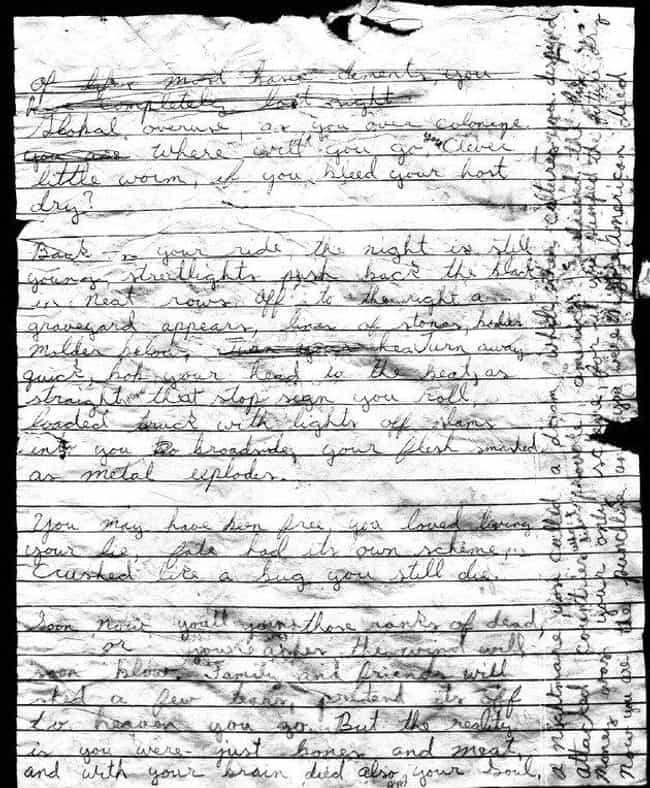 most have you
have completely lost sight
Global overuse, as you over colonize.
you are Where will you go, you clever
little worm, if you bleed your host
dry?
Back in your ride, the night is still
young, streetlights push back the black
in neat rows. Off to the right a
graveyard appears, lines of stones, bodies
molder below. Turn away
quick, bob your head to the beat, as
straight that stop sign you roll,
loaded truck with lights off slams
into you broadside, your flesh smashed
as metal explodes.
You may have been free, you loved living
your lie, fate had its own scheme,
crushed like a bug you still die.
Soon, now, you'll join those ranks of dead,
or your ashes the wind will
soon blow. Family and friends will
shed a few tears, pretend it's off
to heaven you go. But the reality
is you were just bones and meat,
and with your brain died also your soul.
A nightmare you called a dream while other cultures you despised
Attacked countries
Money was your only you pumped the
Now you are the punchline American dead